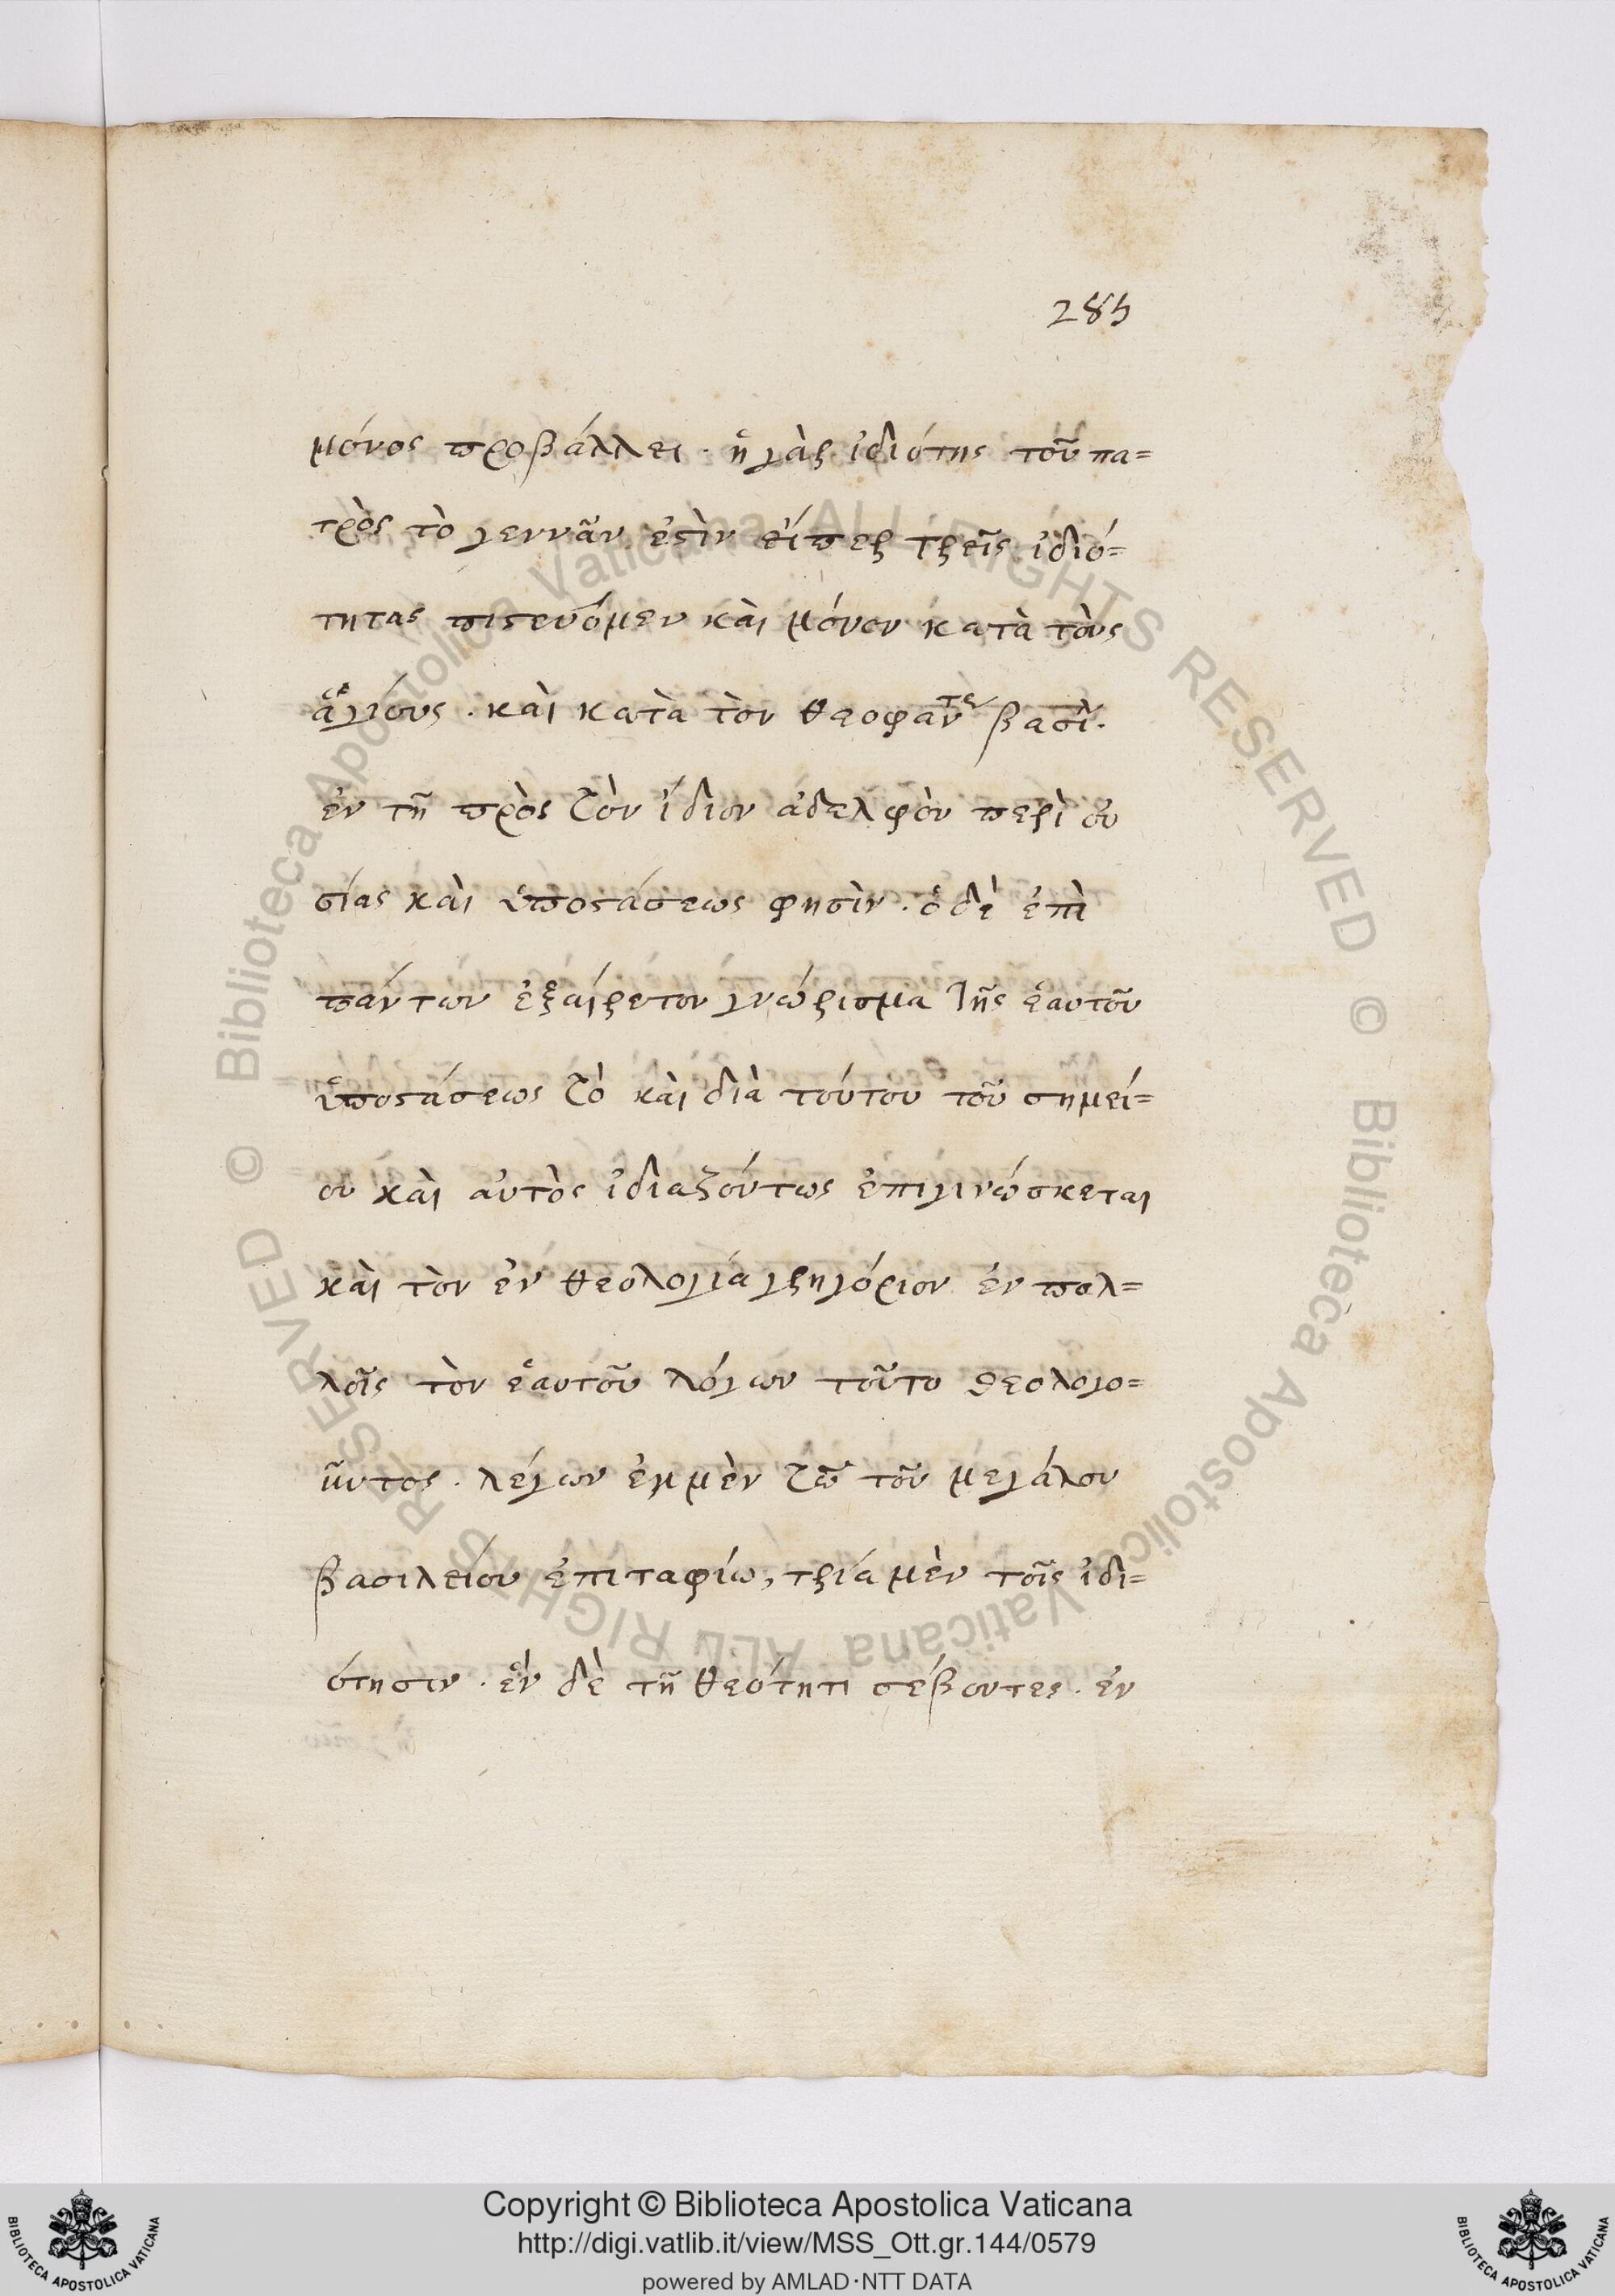 285
μόνος προβάλλει · ἡ γὰρ ἰδιότης τοῦ πα=
τρὸς τὸ γεννᾶν ἐστὶν εἴπερ τρεῖς ἰδιό=
τητας πιστεύομεν καὶ μόνον κατὰ τοὺς
ἁγίους · καὶ κατὰ τὸν θεοφαντ βασι.
ἐν τῇ πρὸς τὸν ἴδιον ἀδελφὸν περὶ οὐ
σίας καὶ ὑποστάσεως φησὶν · ὁ δὲ ἐπὶ
πάντων ἐξαίρετον γνώρισμα τῆς ἑαυτοῦ
ὑποστάσεως τὸ καὶ διὰ τούτου τοῦ σημεί=
ου καὶ αὐτὸς ἰδιαζόντως ἐπιγινώσκεται
καὶ τὸν ἐν θεολογία γρηγόριον ἐν πολ=
λοῖς τὸν ἑαυτοῦ λόγων τοῦτο θεολογο=
ῦντος · λέγων ἐμμὲν τῶ τοῦ μεγάλου
βασιλείου ἐπιταφίω, τρία μὲν τοῖς ἰδι=
ότησιν · ἓν δὲ τῇ θεότητι σέβοντες · ἐν
© Biblioteca Apostolica Vaticana ALL RIGHTS RESERVED © Biblioteca Apostolica Vaticana ALL RIGHTS RESERVED
Copyright © Biblioteca Apostolica Vaticana
http://digi.vatlib.it/view/MSS_Ott.gr.144/0579
powered by AMLAD·NTT DATA
BIBLIOTECA APOSTOLICA VATICANA
BIBLIOTECA APOSTOLICA VATICANA